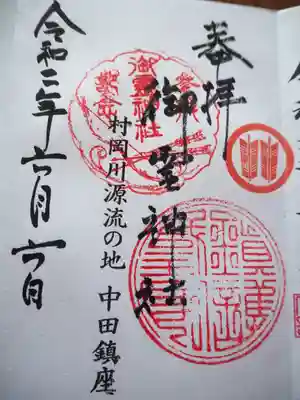 奉拝
御霊神社
村岡川源流の地 中田鎮座
令和二年六月六日
御霊神社